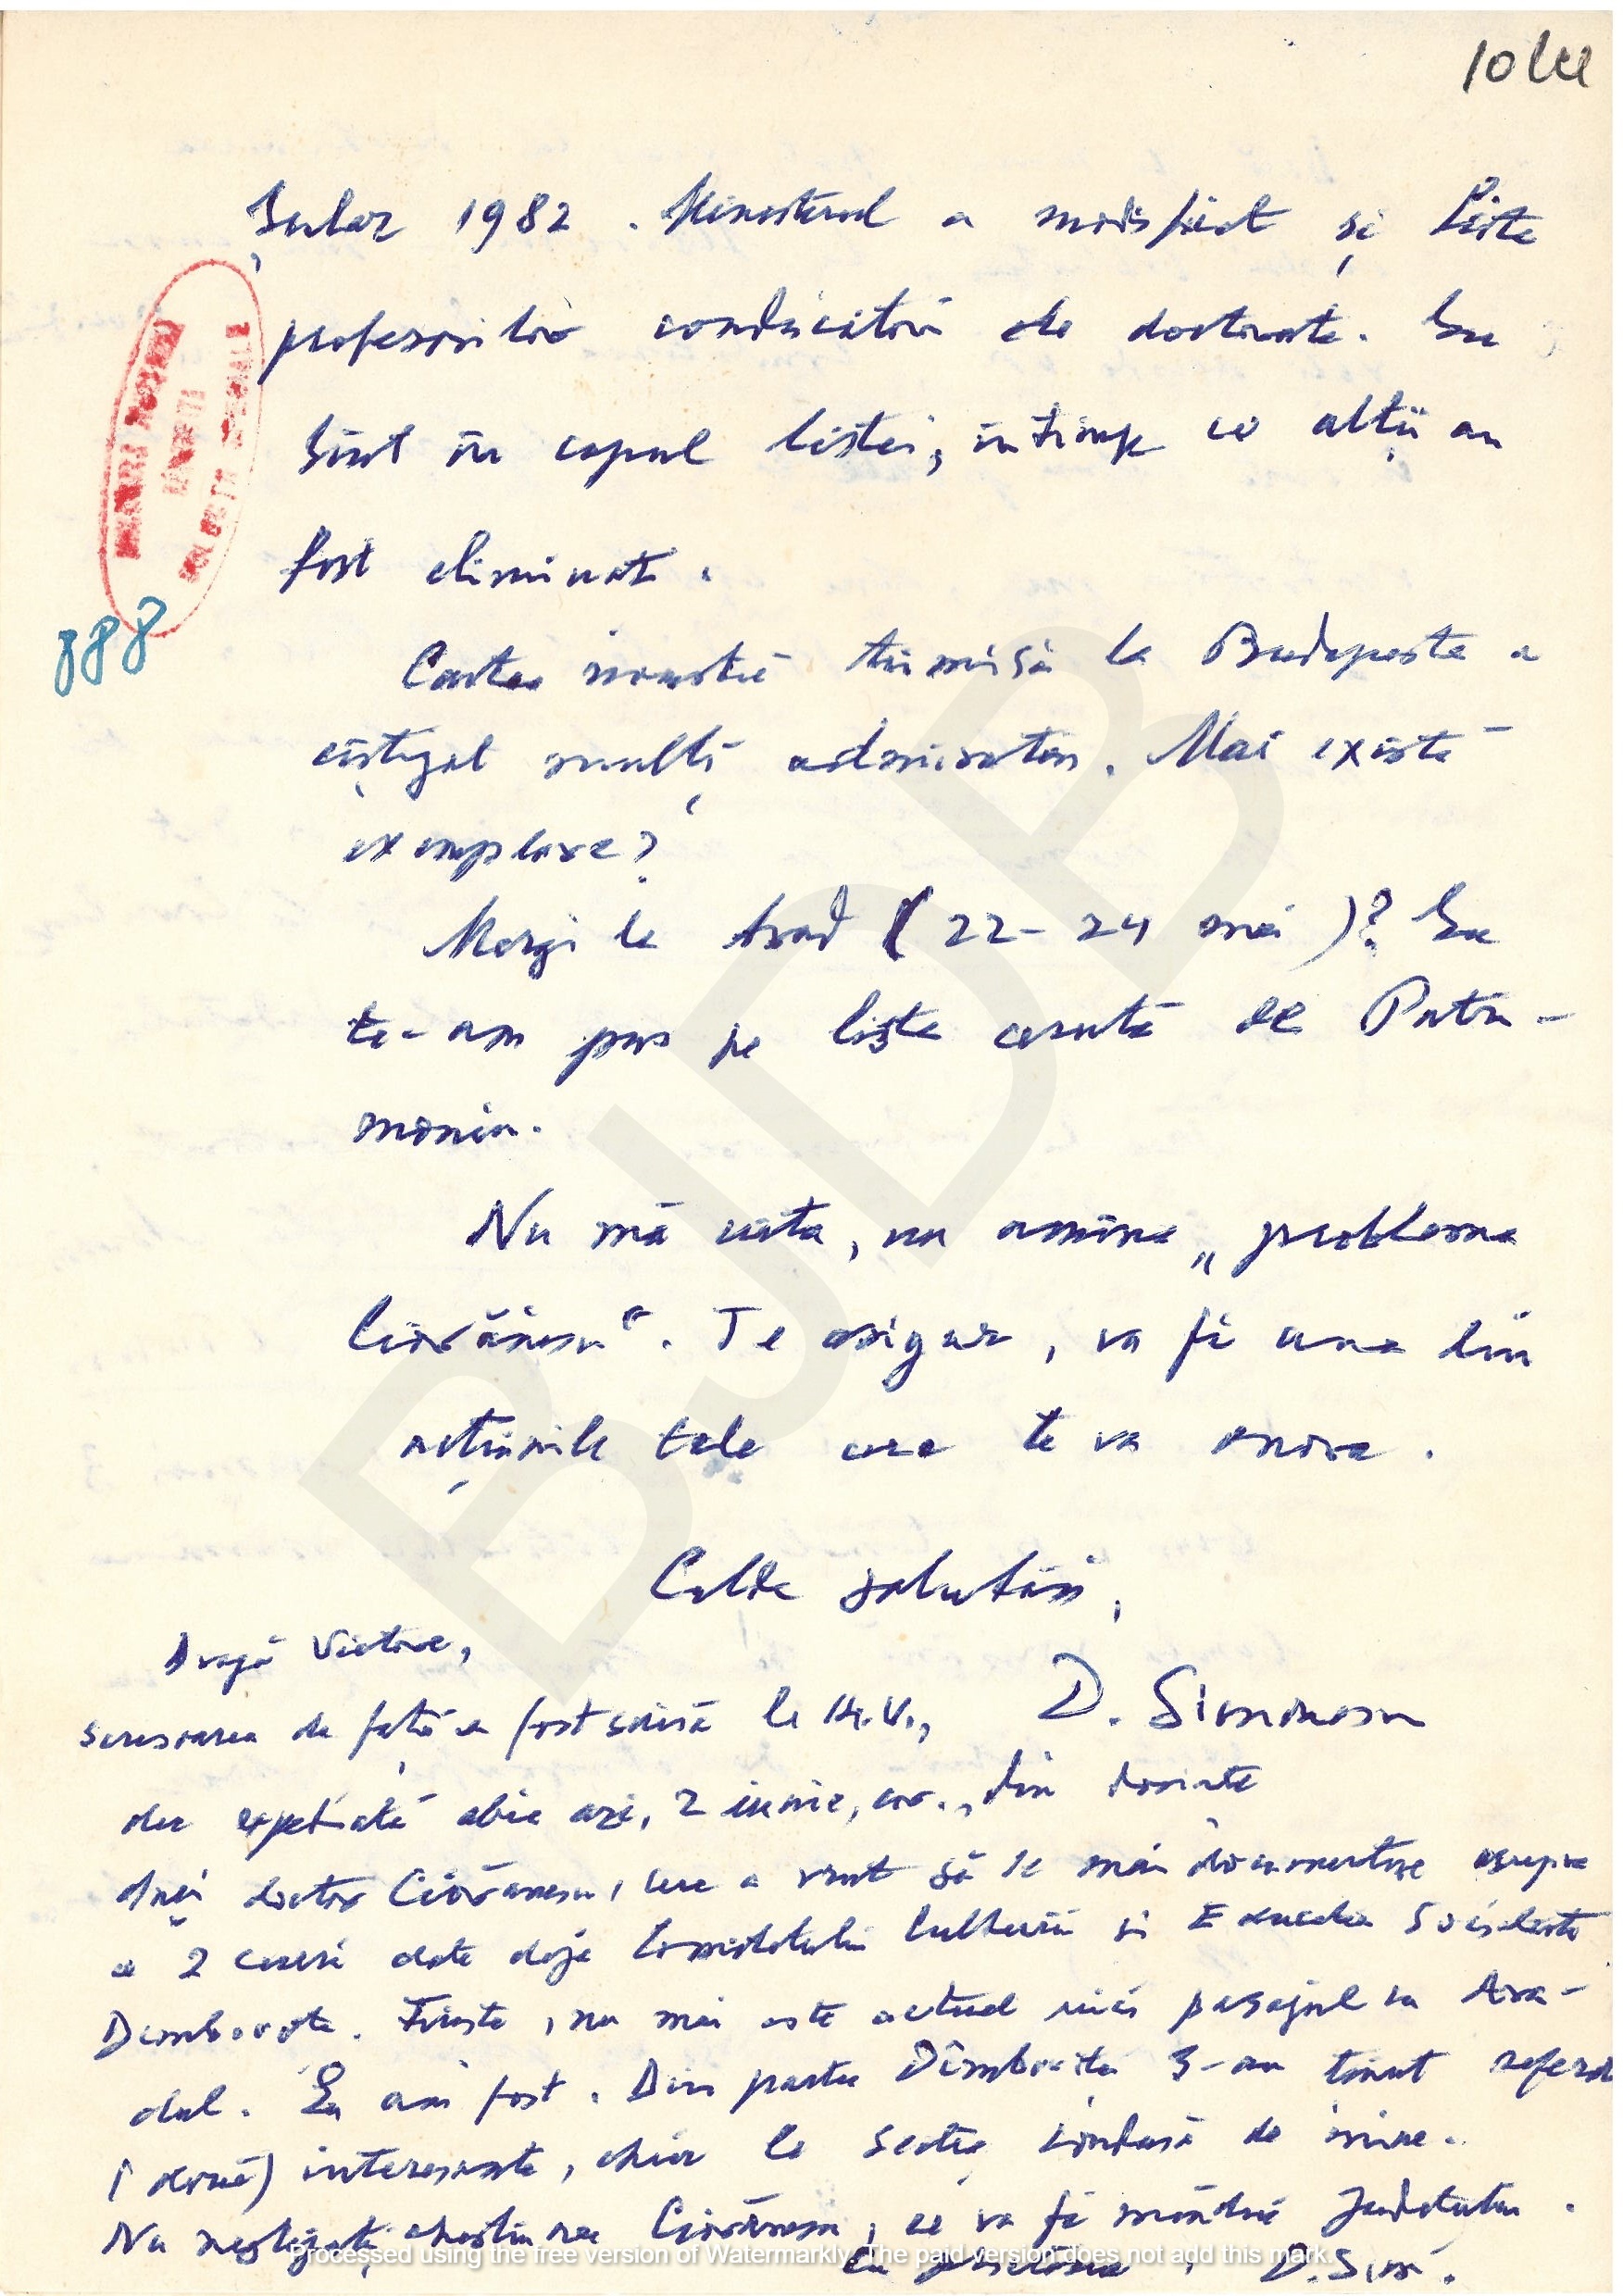 școlar 1982. Ministerul a modificat și lista
profesorilor conducători de doctorate. Eu
sînt în capul listei, în timp ce alții au
fost eliminați.
888
Cartea noastră trimisă la Budapesta a
cîștigat mulți admiratori. Mai există
exemplare?
Mergi la Arad (22-24 mai)? Eu
te-am pus pe lista cerută de Patri-
moniu.
Nu mă uita, nu amîna „problema
Ciorănescu“. Te asigur, va fi una din
acțiunile tale care te va onora.
Calde salutări,
D. Simonescu
Dragă Victore,
scrisoarea de față a fost scrisă la 14.V.,
dar expediată abia azi, 2 iunie, din dorința
dnei doctor Ciorănescu, care a vrut să se mai documenteze asupra
a 2 cereri date deja Comitetului Culturii și Educației Socialiste
Dîmbovița. Firește, nu mai este actual nici pasajul cu Ara-
dul. Eu am fost. Din partea Dîmboviței s-au ținut referate
(două) interesante, chiar la secția condusă de mine.
Nu neglijați chestiunea Ciorănescu, ce va fi mândria Județului.
Cu prietenie, D. Sim.
Processed using the free version of Watermarkly. The paid version does not add this mark.
BJDB